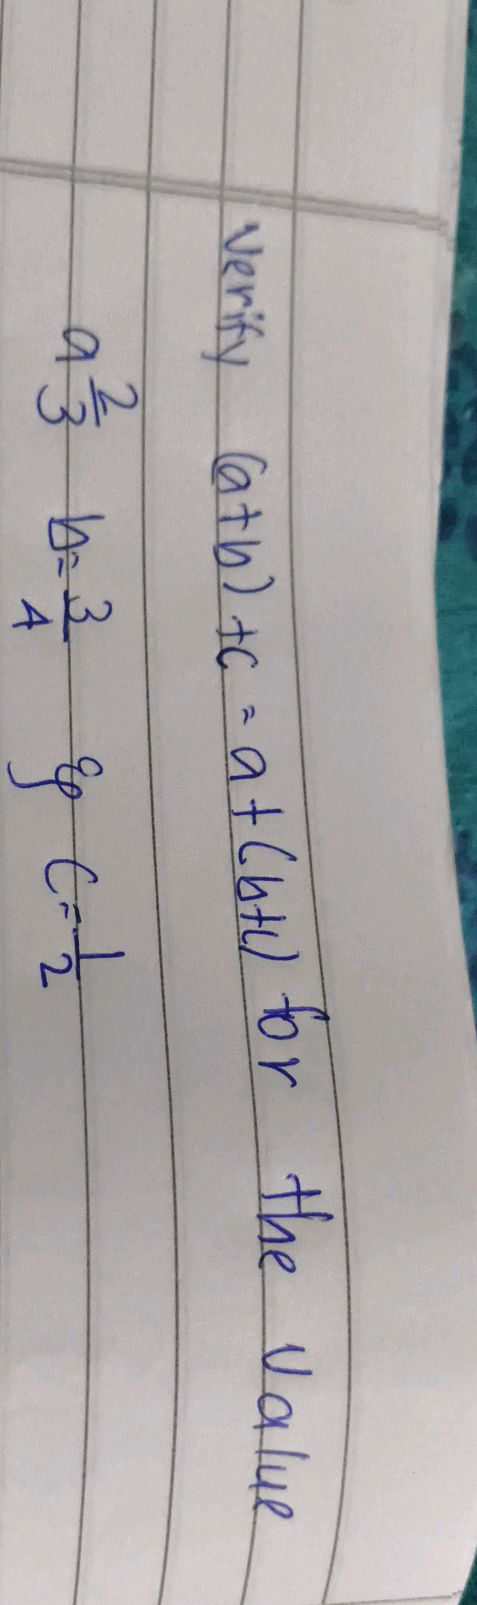 Verify (a+b)+c = a+(b+c) for the value
a 2/3 b= 3/4 & c= 1/2